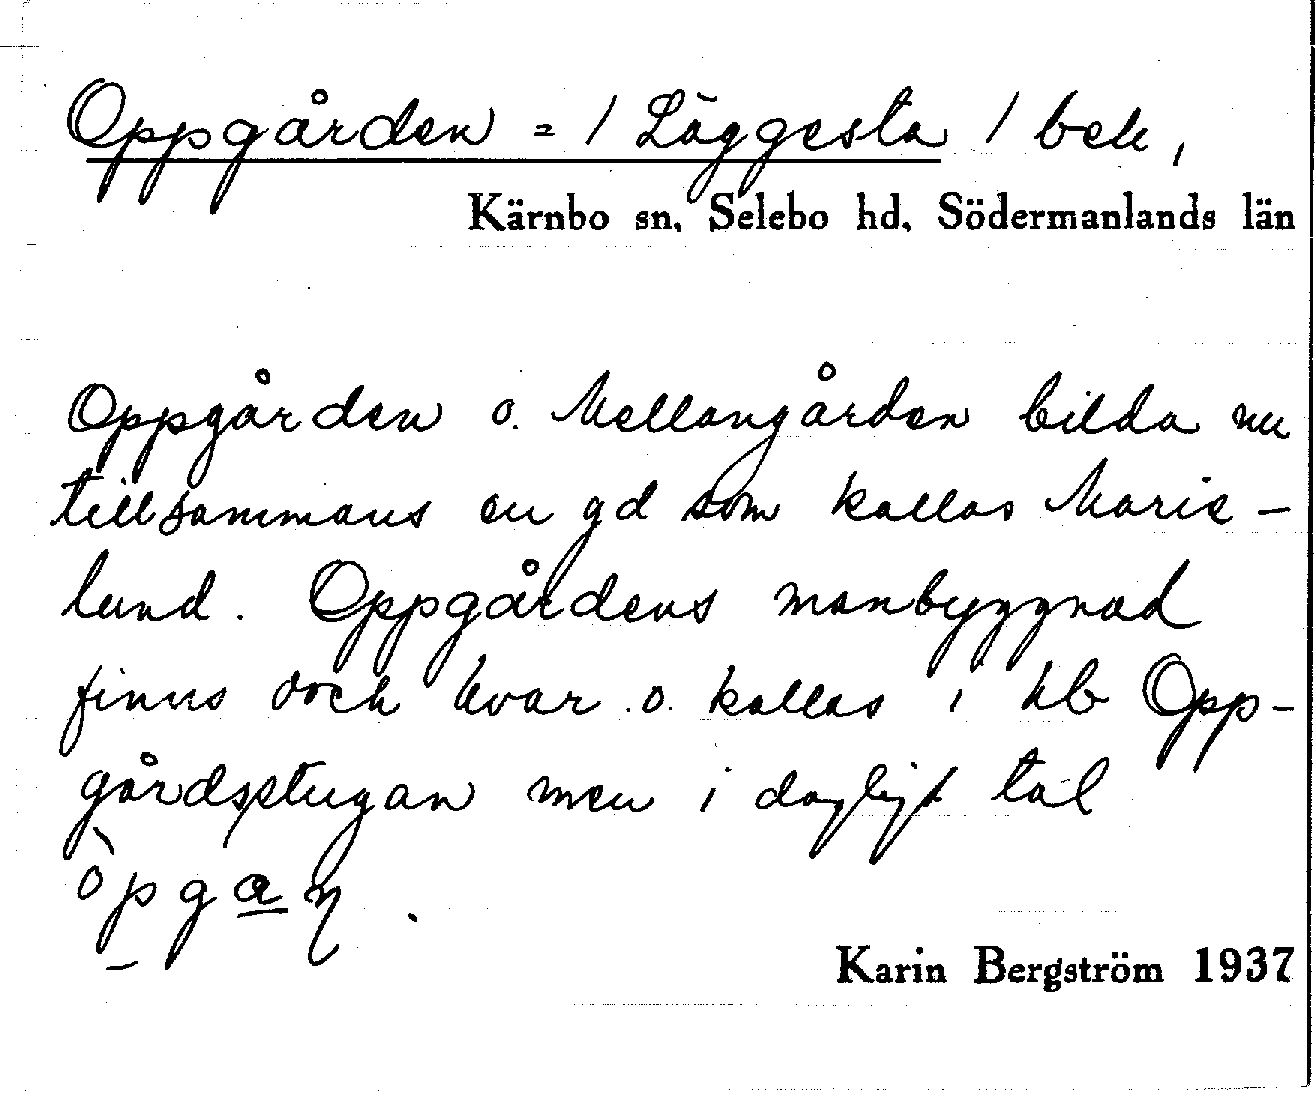 Oppgården = / Läggesta / beb,
Kärnbo sn, Selebo hd, Södermanlands län
Oppgården o. Mellangården bilda nu
tillsammans en gd som kallas Marie-
lund. Oppgårdens manbyggnad
finns doch kvar o. kallas i hb Opp-
gårdsstugan men i dagligt tal
Karin Bergström 1937